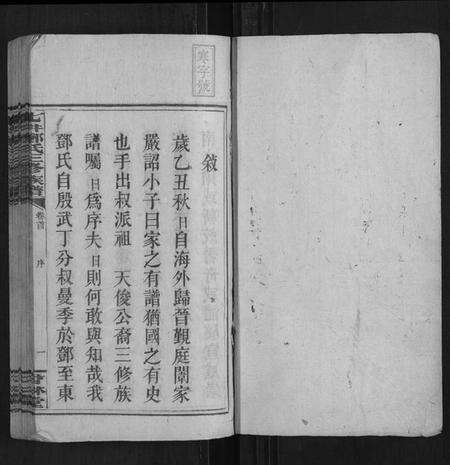 寒字號
敘
歲乙丑秋日自海外歸晉覲庭闈家
嚴詔小子曰家之有譜猶國之有史
也手出叔派祖 天俊公裔三修族
譜囑日爲序夫日則何敢與知哉我
鄧氏自殷武丁分叔曼季於鄧至東
鄧氏三修家譜
卷首
序
一